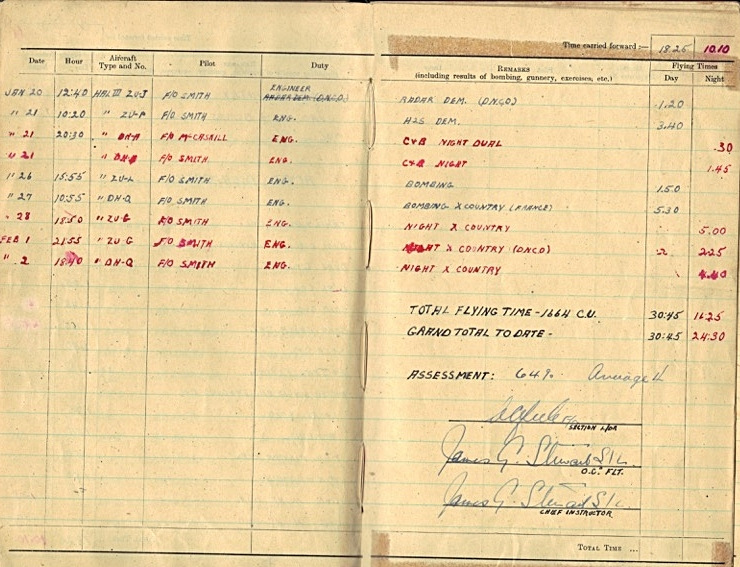 Time carried forward :— 18.25 10.10
Date Hour Aircraft Type and No. Pilot Duty REMARKS (including results of bombing, gunnery, exercises, etc.) Flying Times Day Night
JAN 20 12:40 HAL III ZU-J F/O SMITH ENGINEER RADAR DEM. (D.N.C.O) RADAR DEM. (D.N.C.O) 1.20
" 21 10:20 " ZU-P F/O SMITH ENG. H2S DEM. 3.40
" 21 20:30 " DH-A F/O McCASKILL ENG. C&B NIGHT DUAL .30
" 21 " DH-B F/O SMITH ENG. C&B NIGHT 1.45
" 26 15:55 " ZU-L F/O SMITH ENG. BOMBING 1.50
" 27 10:55 " DH-Q F/O SMITH ENG. BOMBING X COUNTRY (FRANCE) 5.30
" 28 18:50 " ZU-G F/O SMITH ENG. NIGHT X COUNTRY 5.00
FEB 1 21:55 " ZU-G F/O SMITH ENG. NIGHT X COUNTRY (D.N.C.O) 2.25
" 2 18:40 " DH-Q F/O SMITH ENG. NIGHT X COUNTRY
TOTAL FLYING TIME - 1664 C.U. 30:45
GRAND TOTAL TO DATE - 30:45 24:30
ASSESSMENT: 64% Average
SECTION L/DR
James G. Stewart S/L.
O.C. FLT.
James G. Stewart S/L.
CHIEF INSTRUCTOR
TOTAL TIME ...